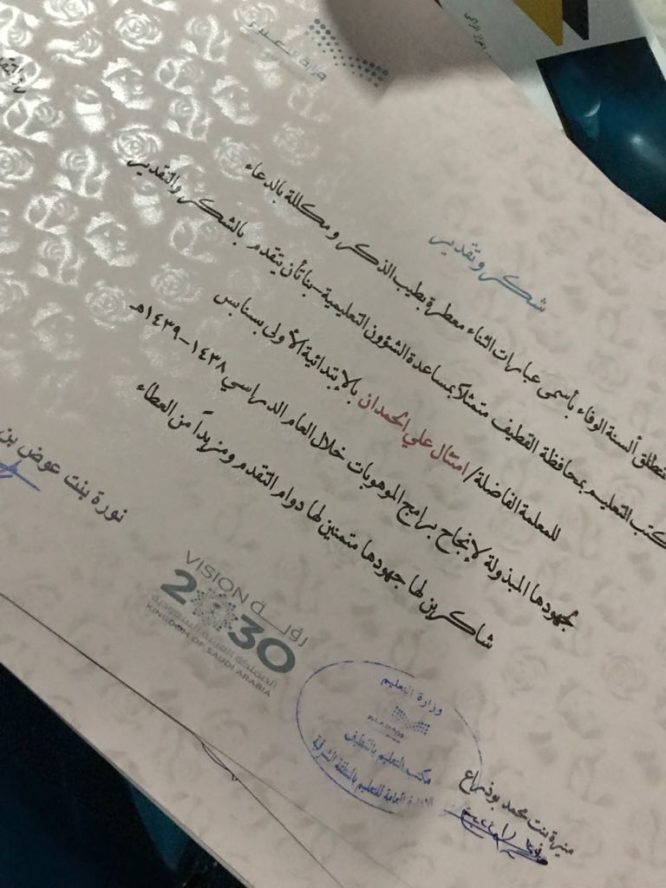 وزارة التعليم
شكر وتقدير
تنطلق ألسنة الوفاء بأسمى عبارات الثناء معطرة بطيب الذكر ومكللة بالدعاء
مكتب التعليم بمحافظة القطيف متمثلاً بمساعدة الشؤون التعليمية يتقدم بالشكر والتقدير
للمعلمة الفاضلة/ امتثال علي الحمدان بالابتدائية الأولى بسنابس
لجهودها المبذولة لإنجاح برامج الموهوبات خلال العام الدراسي ١٤٣٨-١٤٣٩هـ
شاكرين لها جهودها متمنين لها دوام التقدم ومزيداً من العطاء
نورة بنت عوض بن
VISION رؤيـــة
2030
المملكة العربية السعودية
KINGDOM OF SAUDI ARABIA
وزارة التعليم
مكتب التعليم بالقطيف
الإدارة العامة للتعليم بالمنطقة الشرقية
منيرة بنت محمد بوذراع